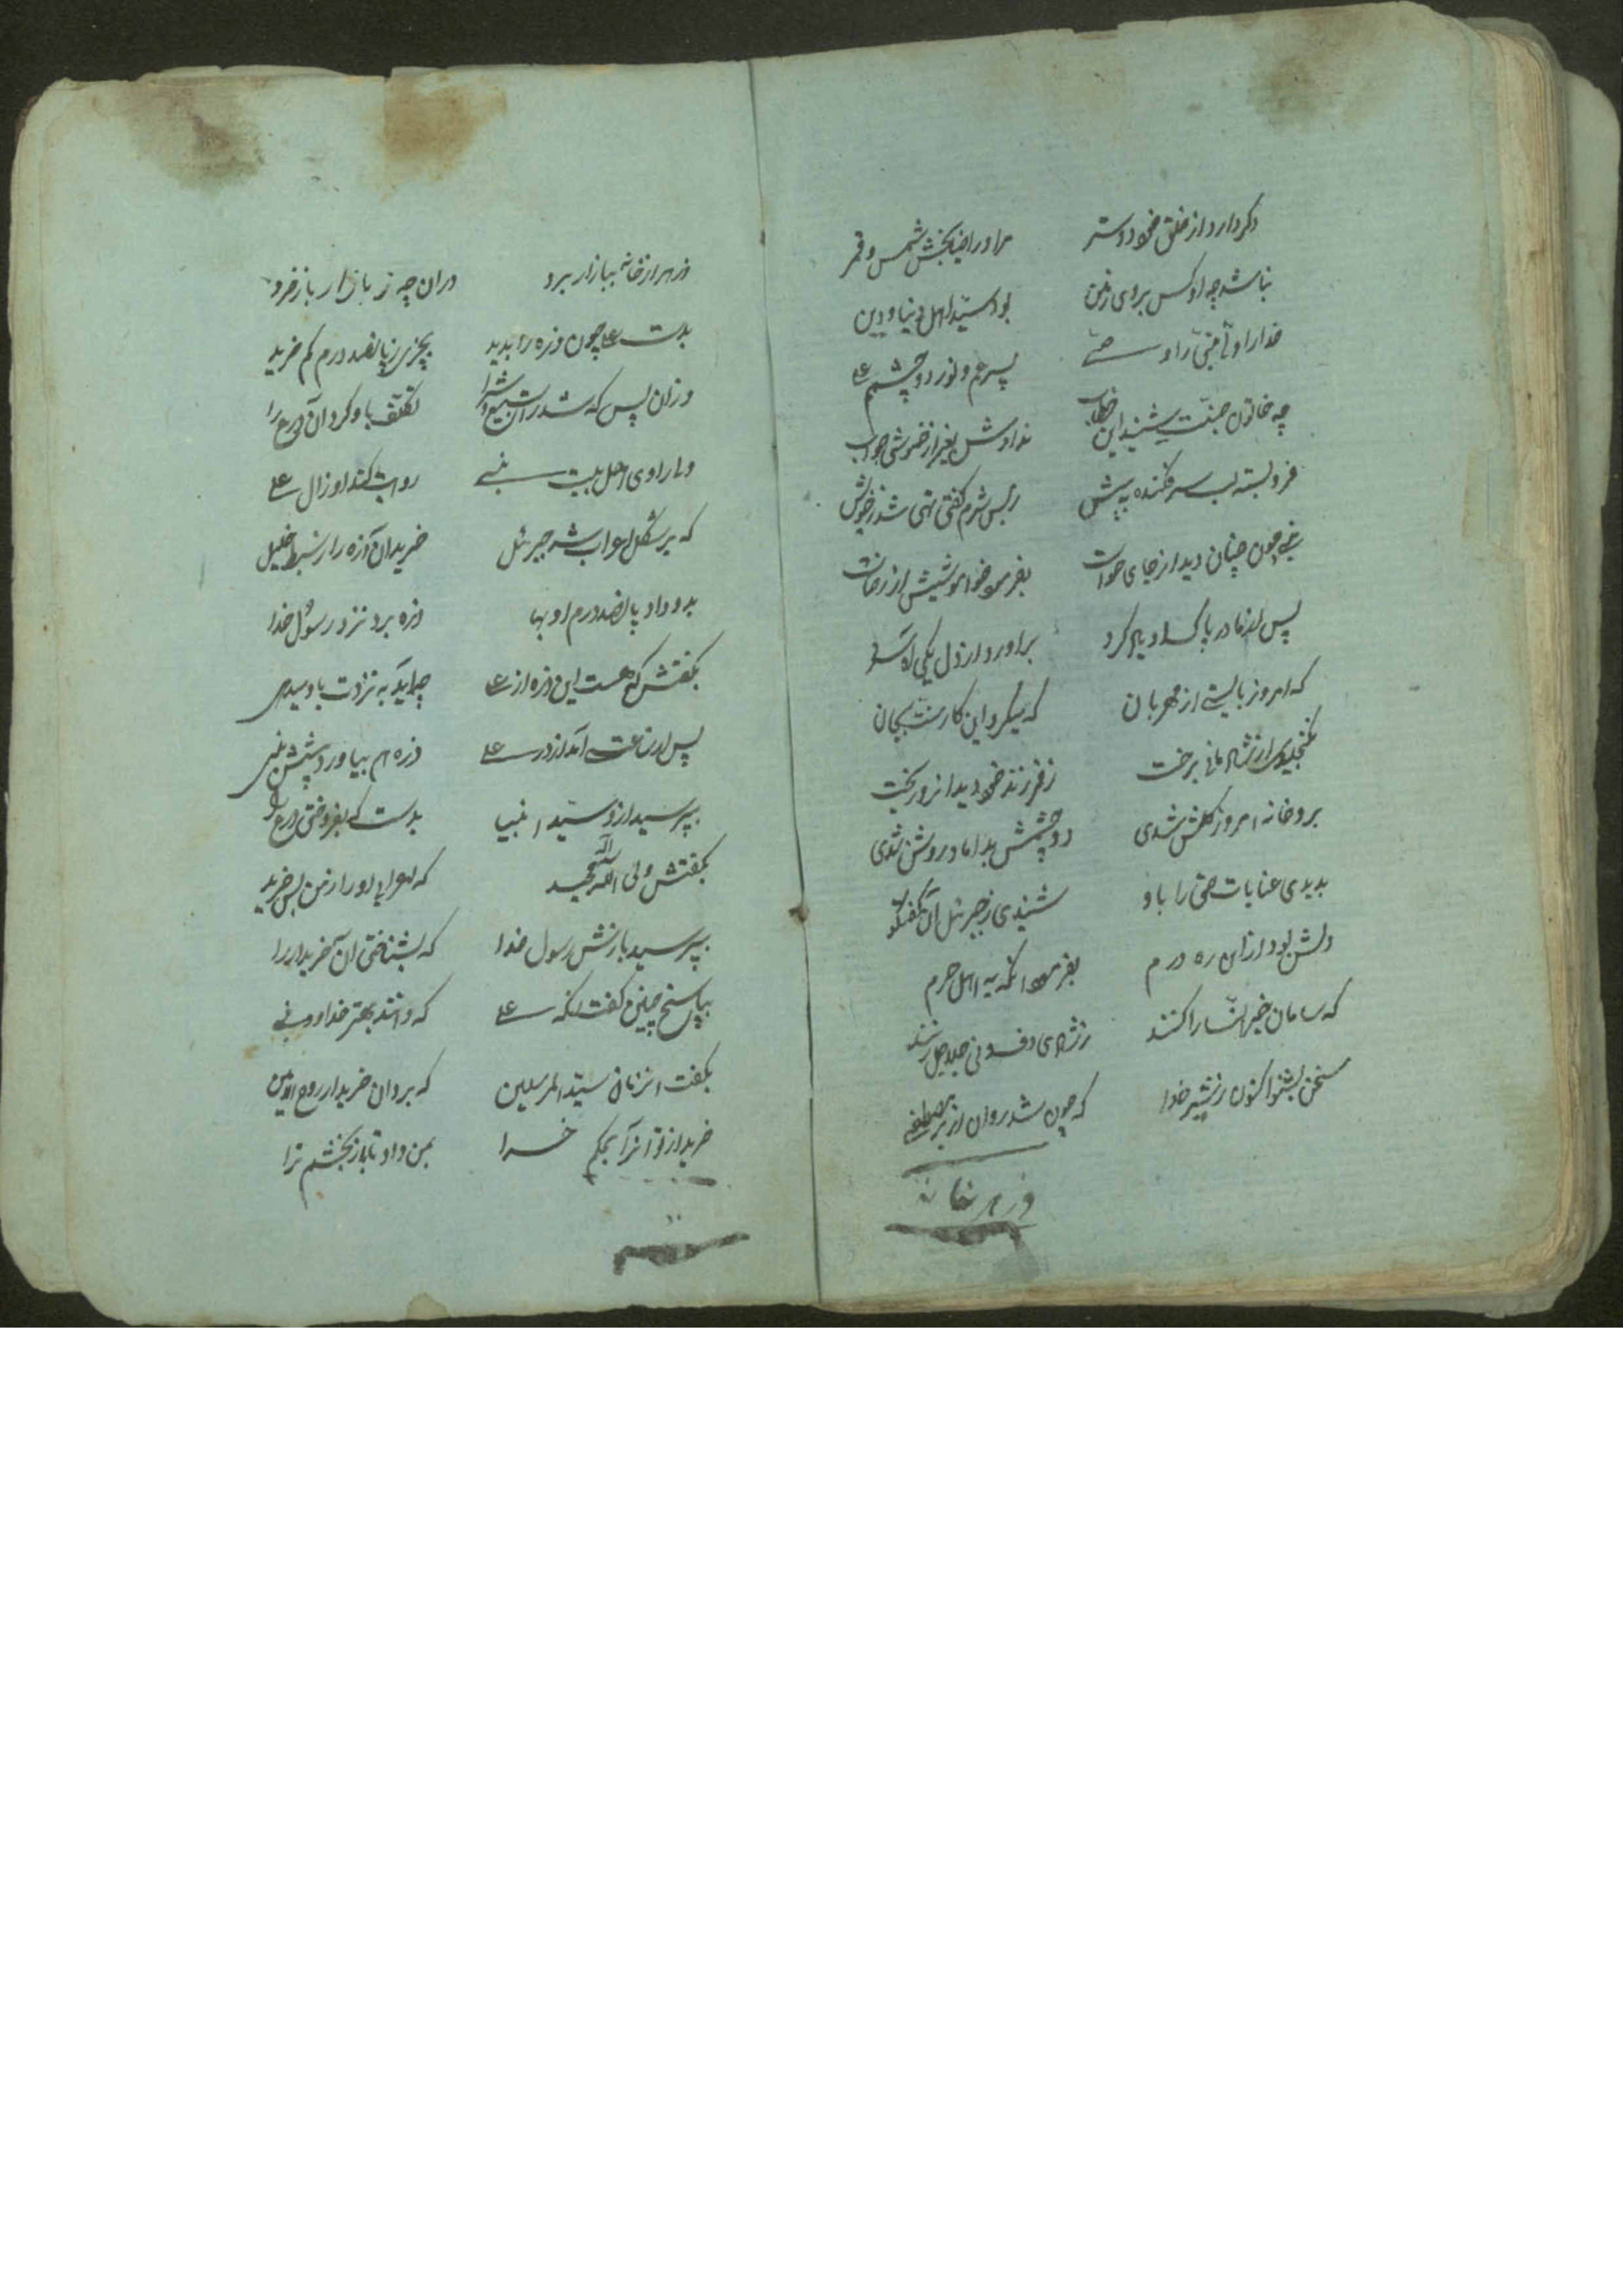 دکر دارد از خلق خود دوستر مر او را ضیابخش شمس و قمر
نباشد چه او کس بروی زمین بود سید اهل دنیا و دین
خدا را و نبی را و پسر عم و نور دو چشم علی
چه خاتون جنت شنید این خطاب ندادش بغیر از خموشی جواب
فرو بسته لب سر فکنده به پیش ز بس شرم گفتی تهی شد ز خویش
نبی چون چنان دید از جای خواست بفرمود خواموشیش از رضاست
پس از مادر پاک او یاد کرد براورد از دل یکی اه سرد
که امروز بایستی از مهربان که میکرد این کار سنت بجان
از شادمانی برخت ز فرزند خود دید این روز بخت
برو خانه امروز گلشن شدی دو چشمش بداماد روشن شدی
بدیدی عنایات حق را باو شنیدی ز جبرئل آن گفتگو
دلش بود ازان ره درم بفرمود انگه به اهل حرم
که سامان خیر النسا را کنند ز شادی دف و نی جلاجل زنند
سخن بشنو اکنون ز شیر خدا که چون شد روان از بر مصطفی
زره از خانه
زره از خانه ببازار برد دران چه ز بازار باز خرد
بدست علی چون زره را بدید بچیزی ز پانصد درم کم خرید
وزان پس که شد راست بیع و شرا تکلف باو کرد آن درع را
و را راوی اهل بیت نبی روایت کند او ز ال علی
که بر شکل اعراب شد جبرئل خرید آن زره را ز سبط خلیل
بدو داد پانصد درم او بها زره برد نزد رسول خدا
بگفتش که هست این زره از علی چه اید به نزدت باو میدهی
پس ان ساعت آمد از در علی زر هم بیاورد پیش نبی
بپرسید ازو سید انبیا بدست که بفروختی درع را
بگفتش ولی الله مجید که اعرابی او را ز من پس خرید
بپرسید بازش رسول خدا که بشناختی آن خریدار را
بپاسخ چنین گفت انگه علی که دانند بهتر خدا و نبی
بگفت انزمان سید المرسلین که برد آن خریدار روح الامین
خرید از تو انرا بحکم خدا بمن داد تا باز بخشم ترا